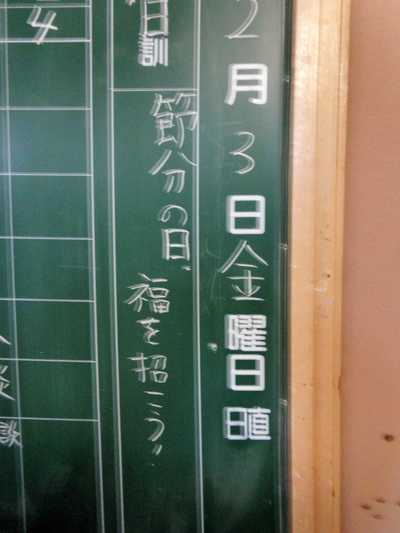 2月3日金曜日 日直
日訓
節分の日、
福を招こう!!
4
談